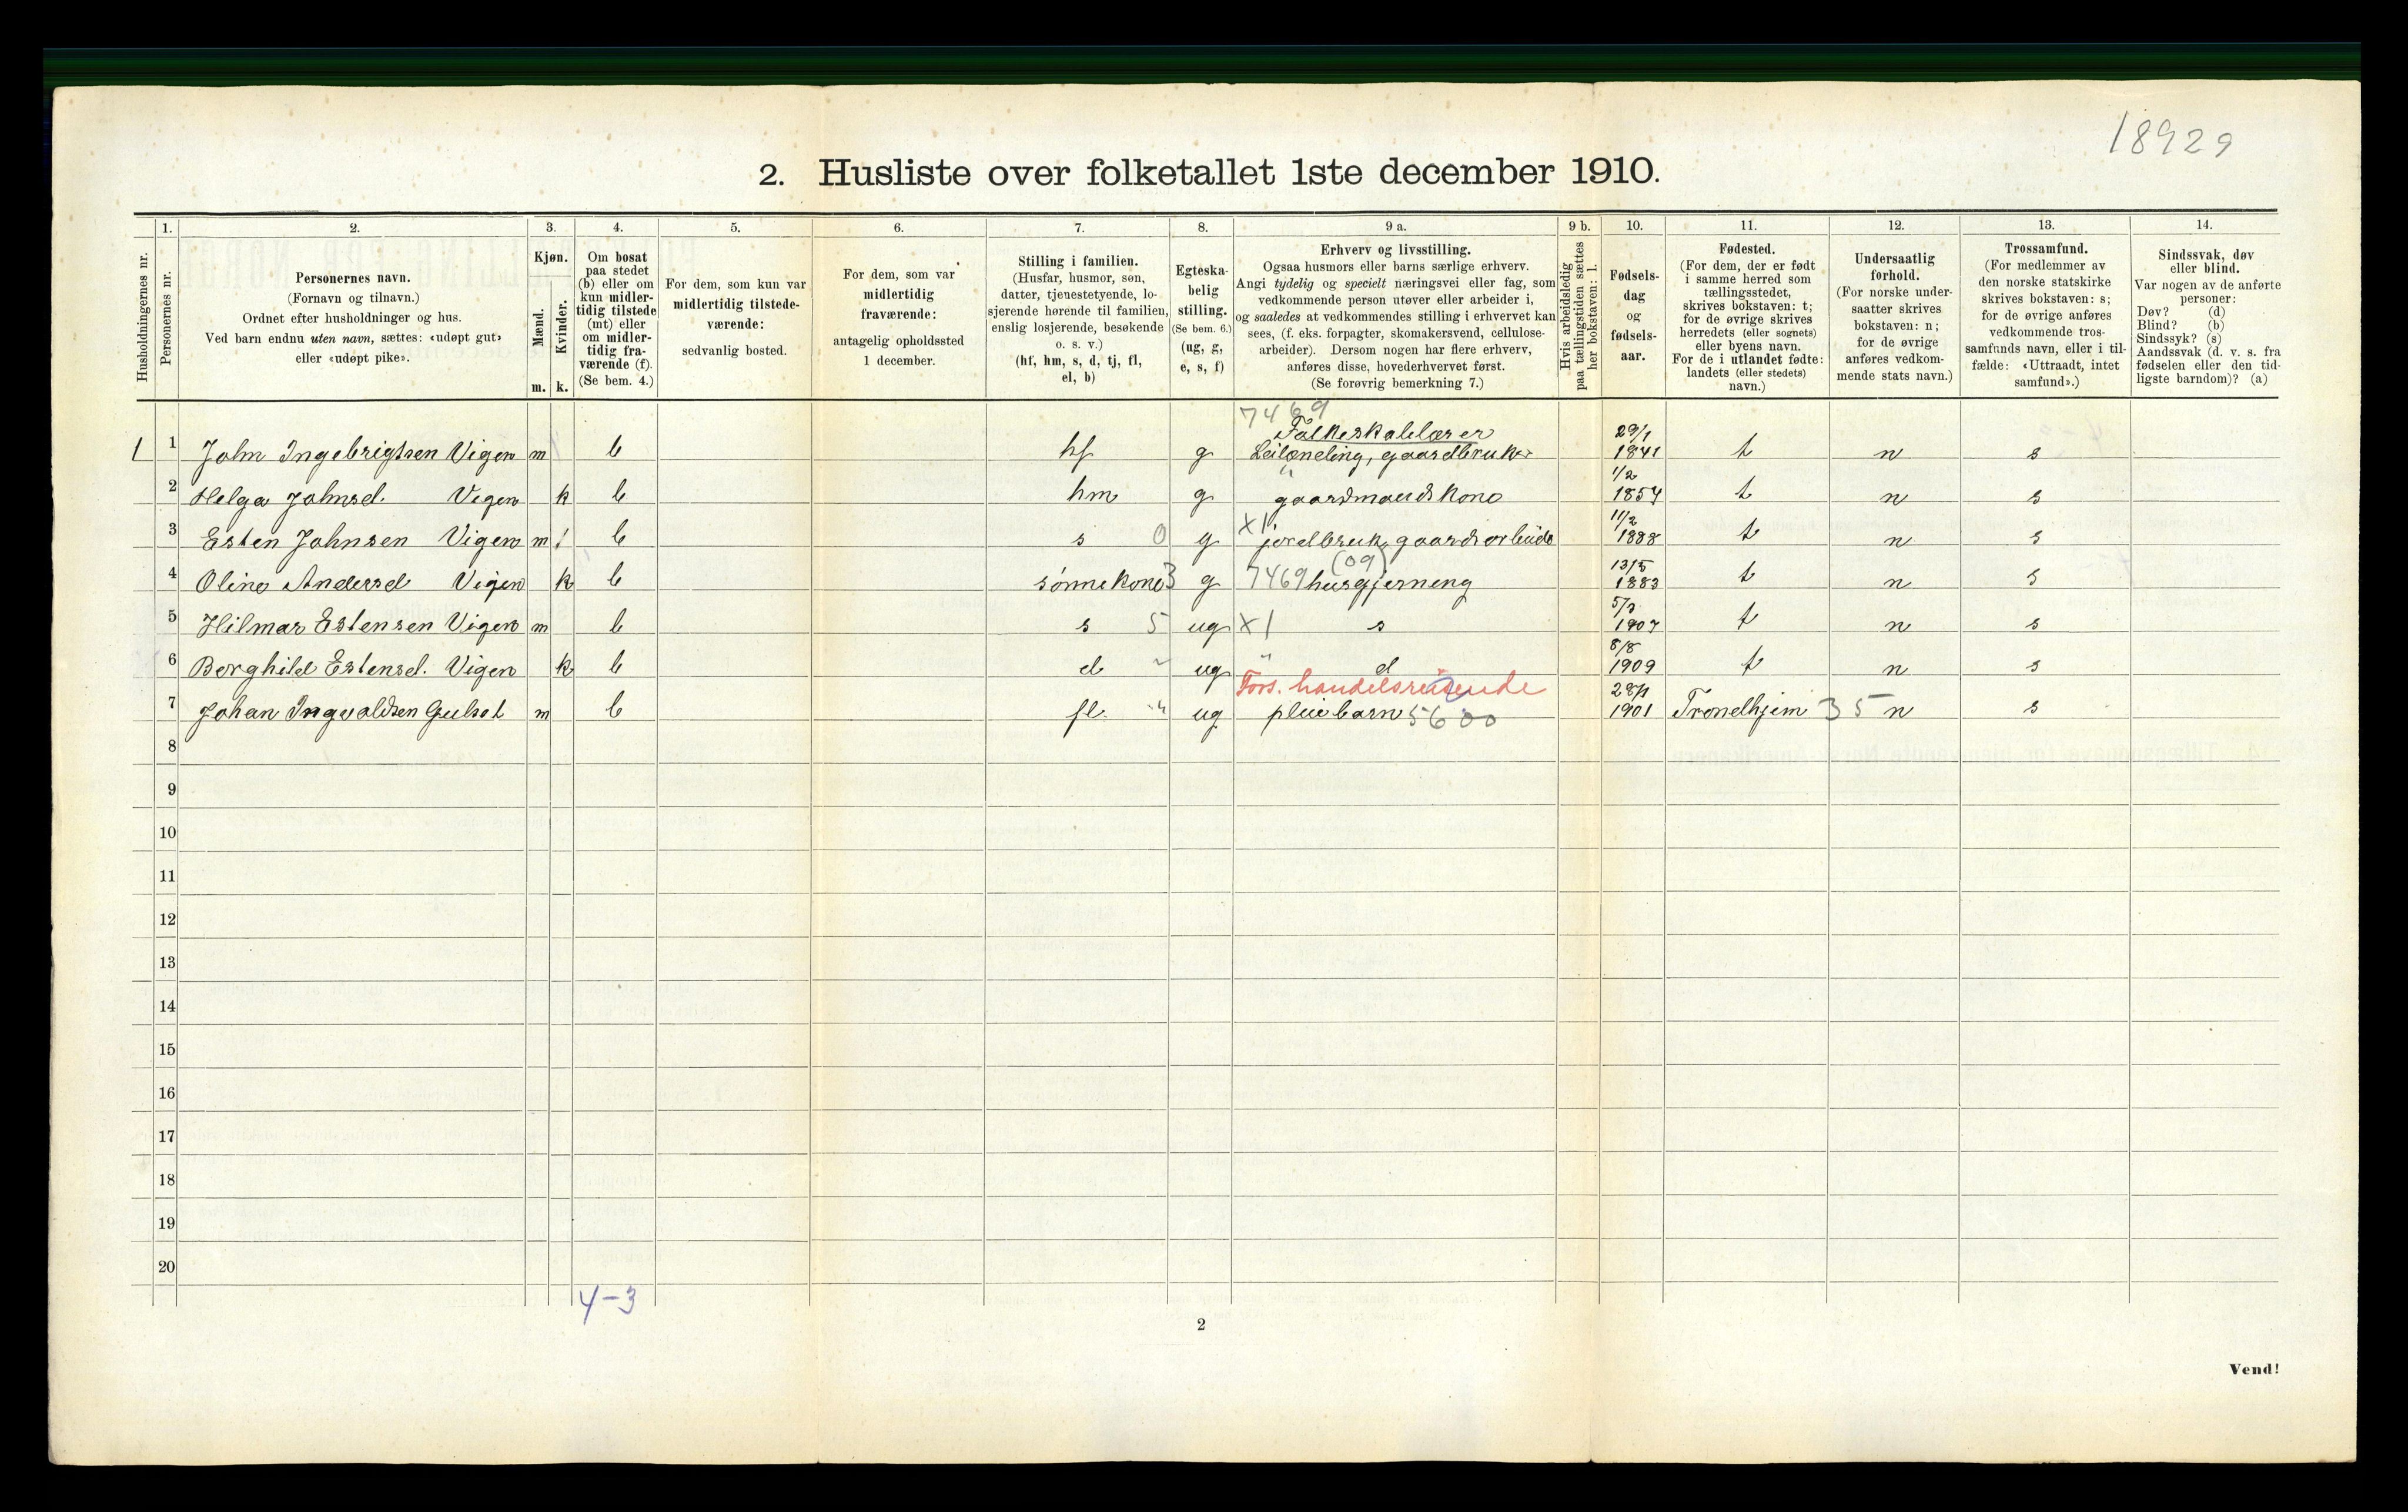 18929
2. Husliste over folketallet 1ste december 1910.
Husholdningernes nr.
1.
Personernes nr.
2.
Personernes navn.
(Fornavn og tilnavn.)
Ordnet efter husholdninger og hus.
Ved barn endnu uten navn, sættes: «udøpt gut»
eller «udøpt pike».
3.
Kjøn.
Mænd.
Kvinder.
m. k.
4.
Om bosat
paa stedet
(b) eller om
kun midler-
tidig tilstede
(mt) eller
om midler-
tidig fra-
værende (f).
(Se bem. 4.)
5.
For dem, som kun var
midlertidig tilstede-
værende:
sedvanlig bosted.
6.
For dem, som var
midlertidig
fraværende:
antagelig opholdssted
1 december.
7.
Stilling i familien.
(Husfar, husmor, søn,
datter, tjenestetyende, lo-
sjerende hørende til familien,
enslig losjerende, besøkende
o. s. v.)
(hf, hm, s, d, tj, fl,
el, b)
8.
Egteska-
belig
stilling.
(Se bem. 6.)
(ug, g,
e, s, f)
9 a.
Erhverv og livsstilling.
Ogsaa husmors eller barns særlige erhverv.
Angi tydelig og specielt næringsvei eller fag, som
vedkommende person utøver eller arbeider i,
og saaledes at vedkommendes stilling i erhvervet kan
sees, (f. eks. forpagter, skomakersvend, cellulose-
arbeider). Dersom nogen har flere erhverv,
anføres disse, hovederhvervet først.
(Se forøvrig bemerkning 7.)
9 b.
Hvis arbeidsledig
paa tællingstiden sættes
her bokstaven: l.
10.
Fødsels-
dag
og
fødsels-
aar.
11.
Fødested.
(For dem, der er født
i samme herred som
tællingsstedet,
skrives bokstaven: t;
for de øvrige skrives
herredets (eller sognets)
eller byens navn.
For de i utlandet fødte:
landets (eller stedets)
navn.)
12.
Undersaatlig
forhold.
(For norske under-
saatter skrives
bokstaven: n;
for de øvrige
anføres vedkom-
mende stats navn.)
13.
Trossamfund.
(For medlemmer av
den norske statskirke
skrives bokstaven: s;
for de øvrige anføres
vedkommende tros-
samfunds navn, eller i til-
fælde: «Uttraadt, intet
samfund».)
14.
Sindssvak, døv
eller blind.
Var nogen av de anførte
personer:
Døv? (d)
Blind? (b)
Sindssyk? (s)
Aandssvak (d. v. s. fra
fødselen eller den tid-
ligste barndom)? (a)
7469
Folkeskolelærer
1 1 John Ingebrigtsen Vigen m b hf g Leilænding, gaardbruker 29/1 1841 t n s
2 Helga Johnsd. Vigen k b hm g " gaardmandskone 1/2 1854 t n s
3 Esten Johnsen Vigen m 1 b s 0 g X1 jordbruk, gaardsarbeide 11/2 1888 t n s
(09)
4 Oline Andersd Vigen k b sønnekone 3 g 7469 husgjerning 13/5 1883 t n s
5 Hilmar Estensen Vigen m b s 5 ug X1 s 5/3 1907 t n s
6 Borghild Estensd. Vigen k b d " ug " d 8/8 1909 t n s
Fors. handelsreisende
7 Johan Ingvaldsen Gulset m b fl. " ug pleiebarn 5600 28/1 1901 Trondhjem 35 n s
8
9
10
11
12
13
14
15
16
17
18
19
20
4-3
2
Vend!